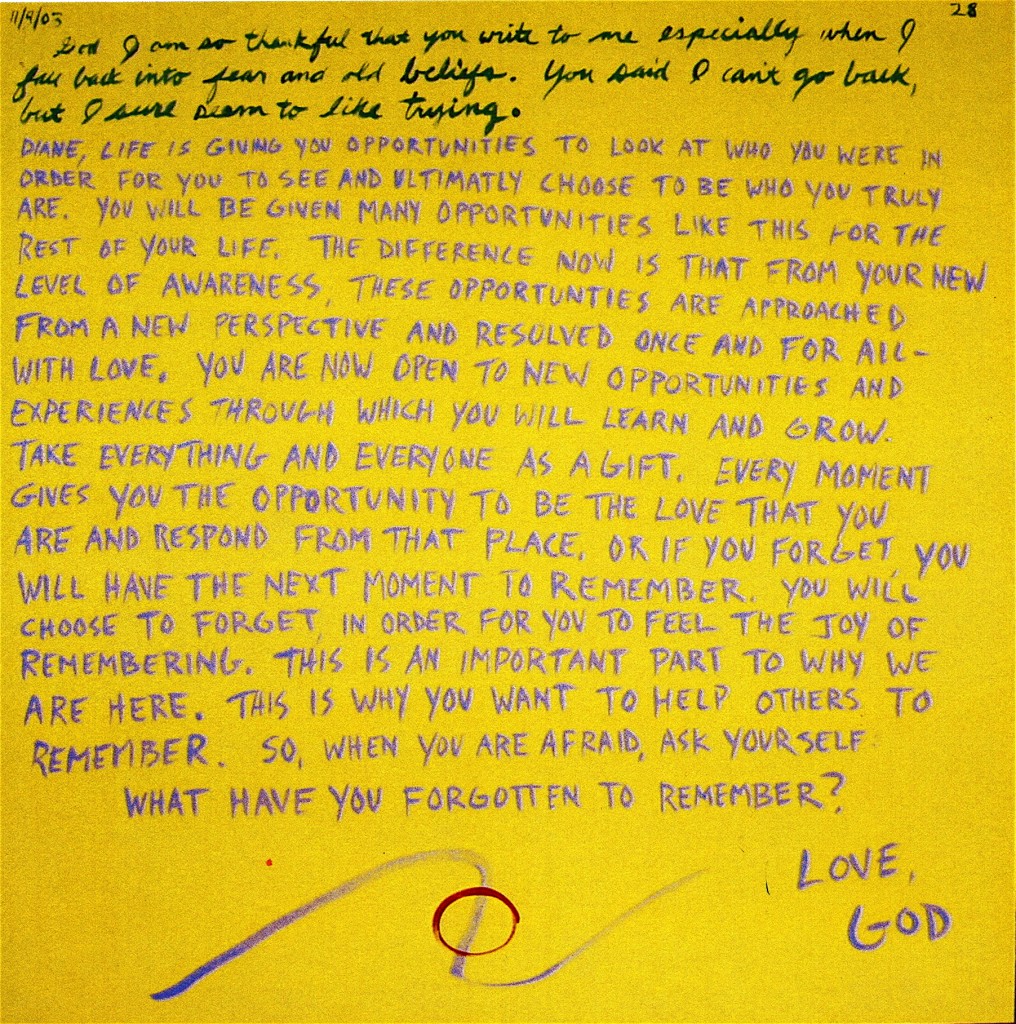 11/9/03 28
God I am so thankful that you write to me especially when I
fall back into fear and old beliefs. You said I can't go back,
but I sure seem to like trying.
DIANE, LIFE IS GIVING YOU OPPORTUNITIES TO LOOK AT WHO YOU WERE IN
ORDER FOR YOU TO SEE AND ULTIMATLY CHOOSE TO BE WHO YOU TRULY
ARE. YOU WILL BE GIVEN MANY OPPORTUNITIES LIKE THIS FOR THE
REST OF YOUR LIFE. THE DIFFERENCE NOW IS THAT FROM YOUR NEW
LEVEL OF AWARENESS, THESE OPPORTUNTIES ARE APPROACHED
FROM A NEW PERSPECTIVE AND RESOLVED ONCE AND FOR ALL-
WITH LOVE. YOU ARE NOW OPEN TO NEW OPPORTUNITIES AND
EXPERIENCES THROUGH WHICH YOU WILL LEARN AND GROW.
TAKE EVERYTHING AND EVERYONE AS A GIFT. EVERY MOMENT
GIVES YOU THE OPPORTUNITY TO BE THE LOVE THAT YOU
ARE AND RESPOND FROM THAT PLACE. OR IF YOU FORGET, YOU
WILL HAVE THE NEXT MOMENT TO REMEMBER. YOU WILL
CHOOSE TO FORGET, IN ORDER FOR YOU TO FEEL THE JOY OF
REMEMBERING. THIS IS AN IMPORTANT PART TO WHY WE
ARE HERE. THIS IS WHY YOU WANT TO HELP OTHERS TO
REMEMBER. SO, WHEN YOU ARE AFRAID, ASK YOURSELF
WHAT HAVE YOU FORGOTTEN TO REMEMBER?
LOVE,
GOD